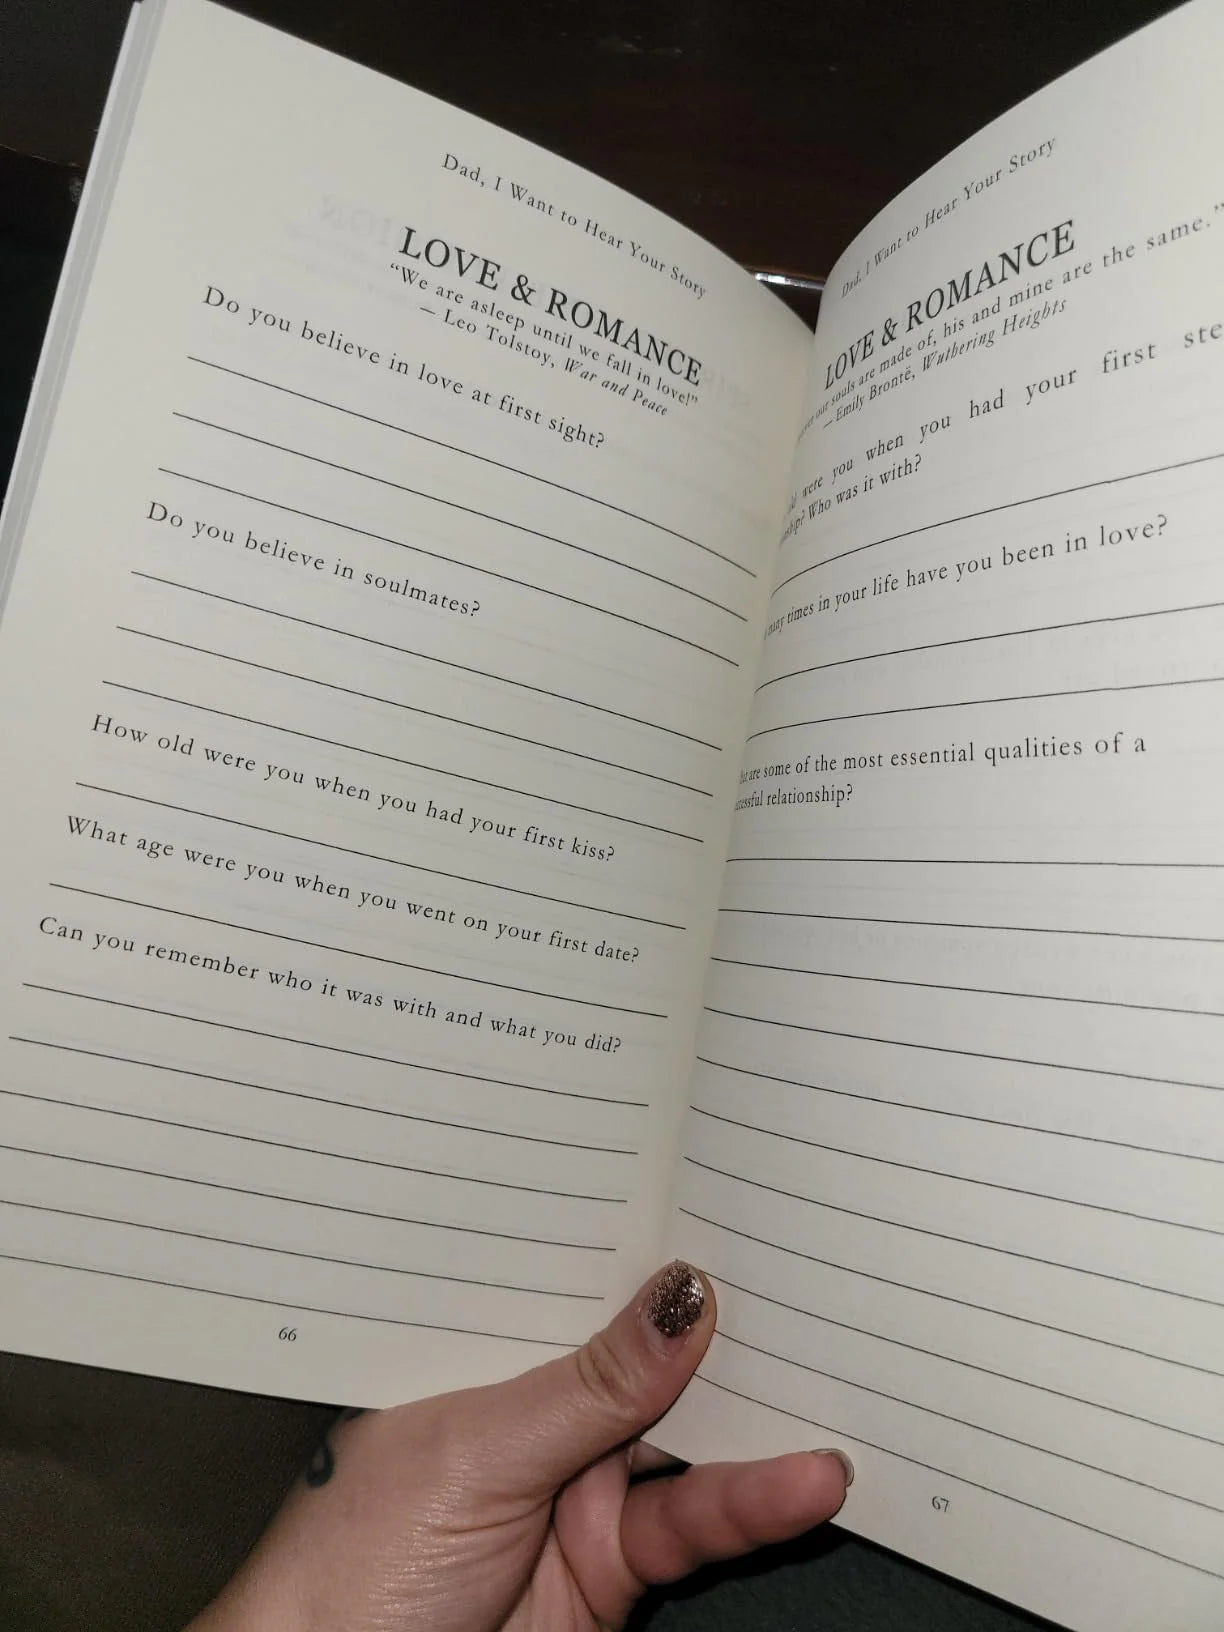 Dad, I Want to Hear Your Story
LOVE & ROMANCE
“We are asleep until we fall in love!”
— Leo Tolstoy, War and Peace
Do you believe in love at first sight?
Do you believe in soulmates?
How old were you when you had your first kiss?
What age were you when you went on your first date?
Can you remember who it was with and what you did?
66
Dad, I Want to Hear Your Story
LOVE & ROMANCE
our souls are made of, his and mine are the same.”
— Emily Brontë, Wuthering Heights
were you when you had your first
Who was it with?
times in your life have you been in love?
are some of the most essential qualities of a
relationship?
67